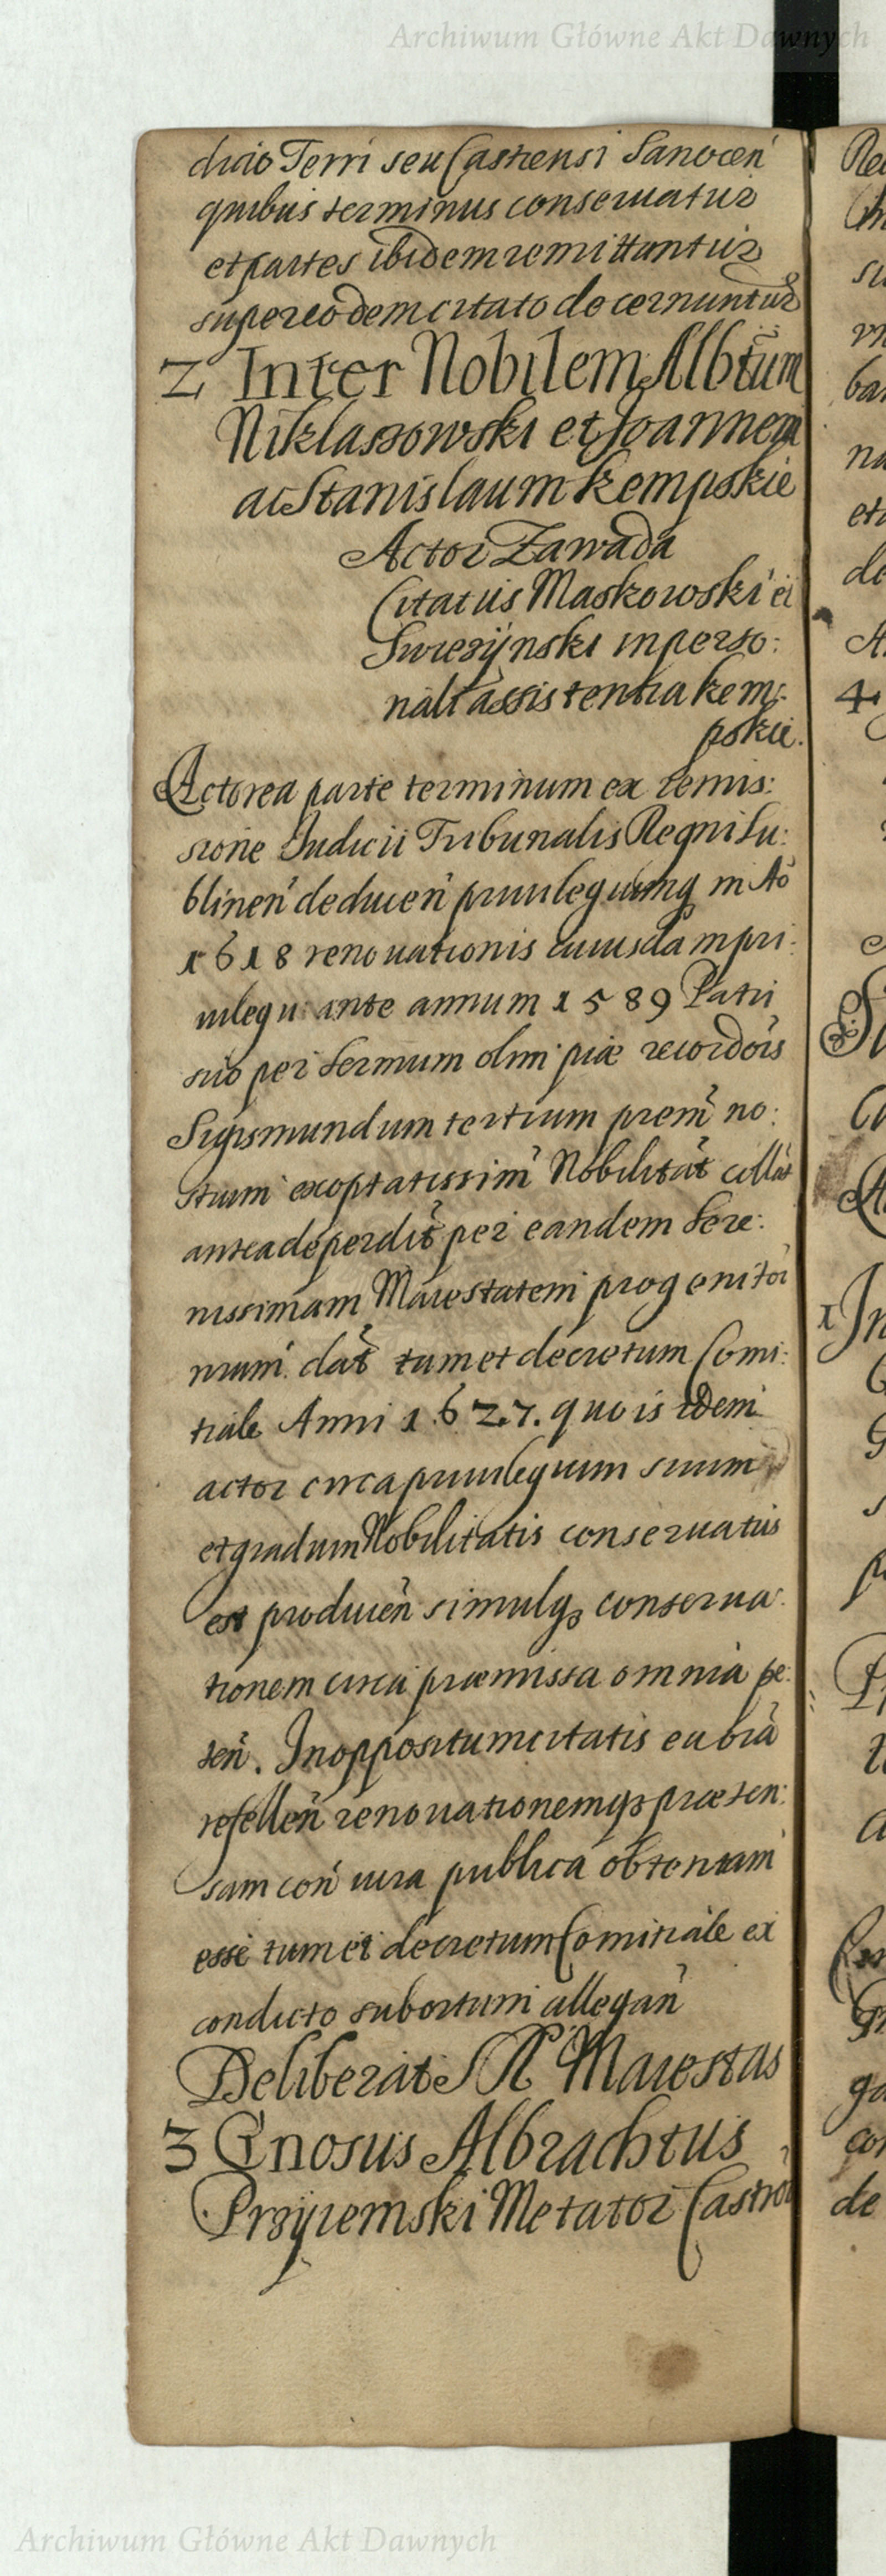 Archiwum Główne Akt Dawnych
dicio Terri seu Castrensi Sanocen
quibus terminus conseruatur
et partes ibidem remittuntur
super eodem citato decernuntur
2 Inter Nobilem Albtum
Niklassowski et Joannem
ac Stanislaum Kempskie
Actor Zawada
Citatus Maskowski et
Swiezynski in perso:
nali assistentia Kem:
pskie.
Actorea parte terminum ex remis:
sione Judicii Tribunalis Regni Lu:
blinen deducen priuilegiumq in Ao
1618 renouationis cuiusdam pri:
uilegii ante annum 1589 Patri
suo per Sermum olim piæ recordois
Sigismundum tertium prem no:
strum exoptatissim Nobilitat collat
antea deperdit per eandem Sere:
nissimam Maiestatem progenitor
nrum. dat tum et decretum Comi:
tiale Anni 1627. quo is idem
actor circa priuilegium suum
et gradum Nobilitatis conseruatus
est producen simulq conserua:
tionem circa præmissa omnia pe:
ten. In oppositum citatis ea oia
refellen renouationemq præten:
sam con iura publica obtentam
esse tum et decretum Comitiale ex
condicto subortum allegan
Deliberat S R Maiestas
3 Gnosus Albrachtus
Przyiemski Metator Castror
Archiwum Główne Akt Dawnych